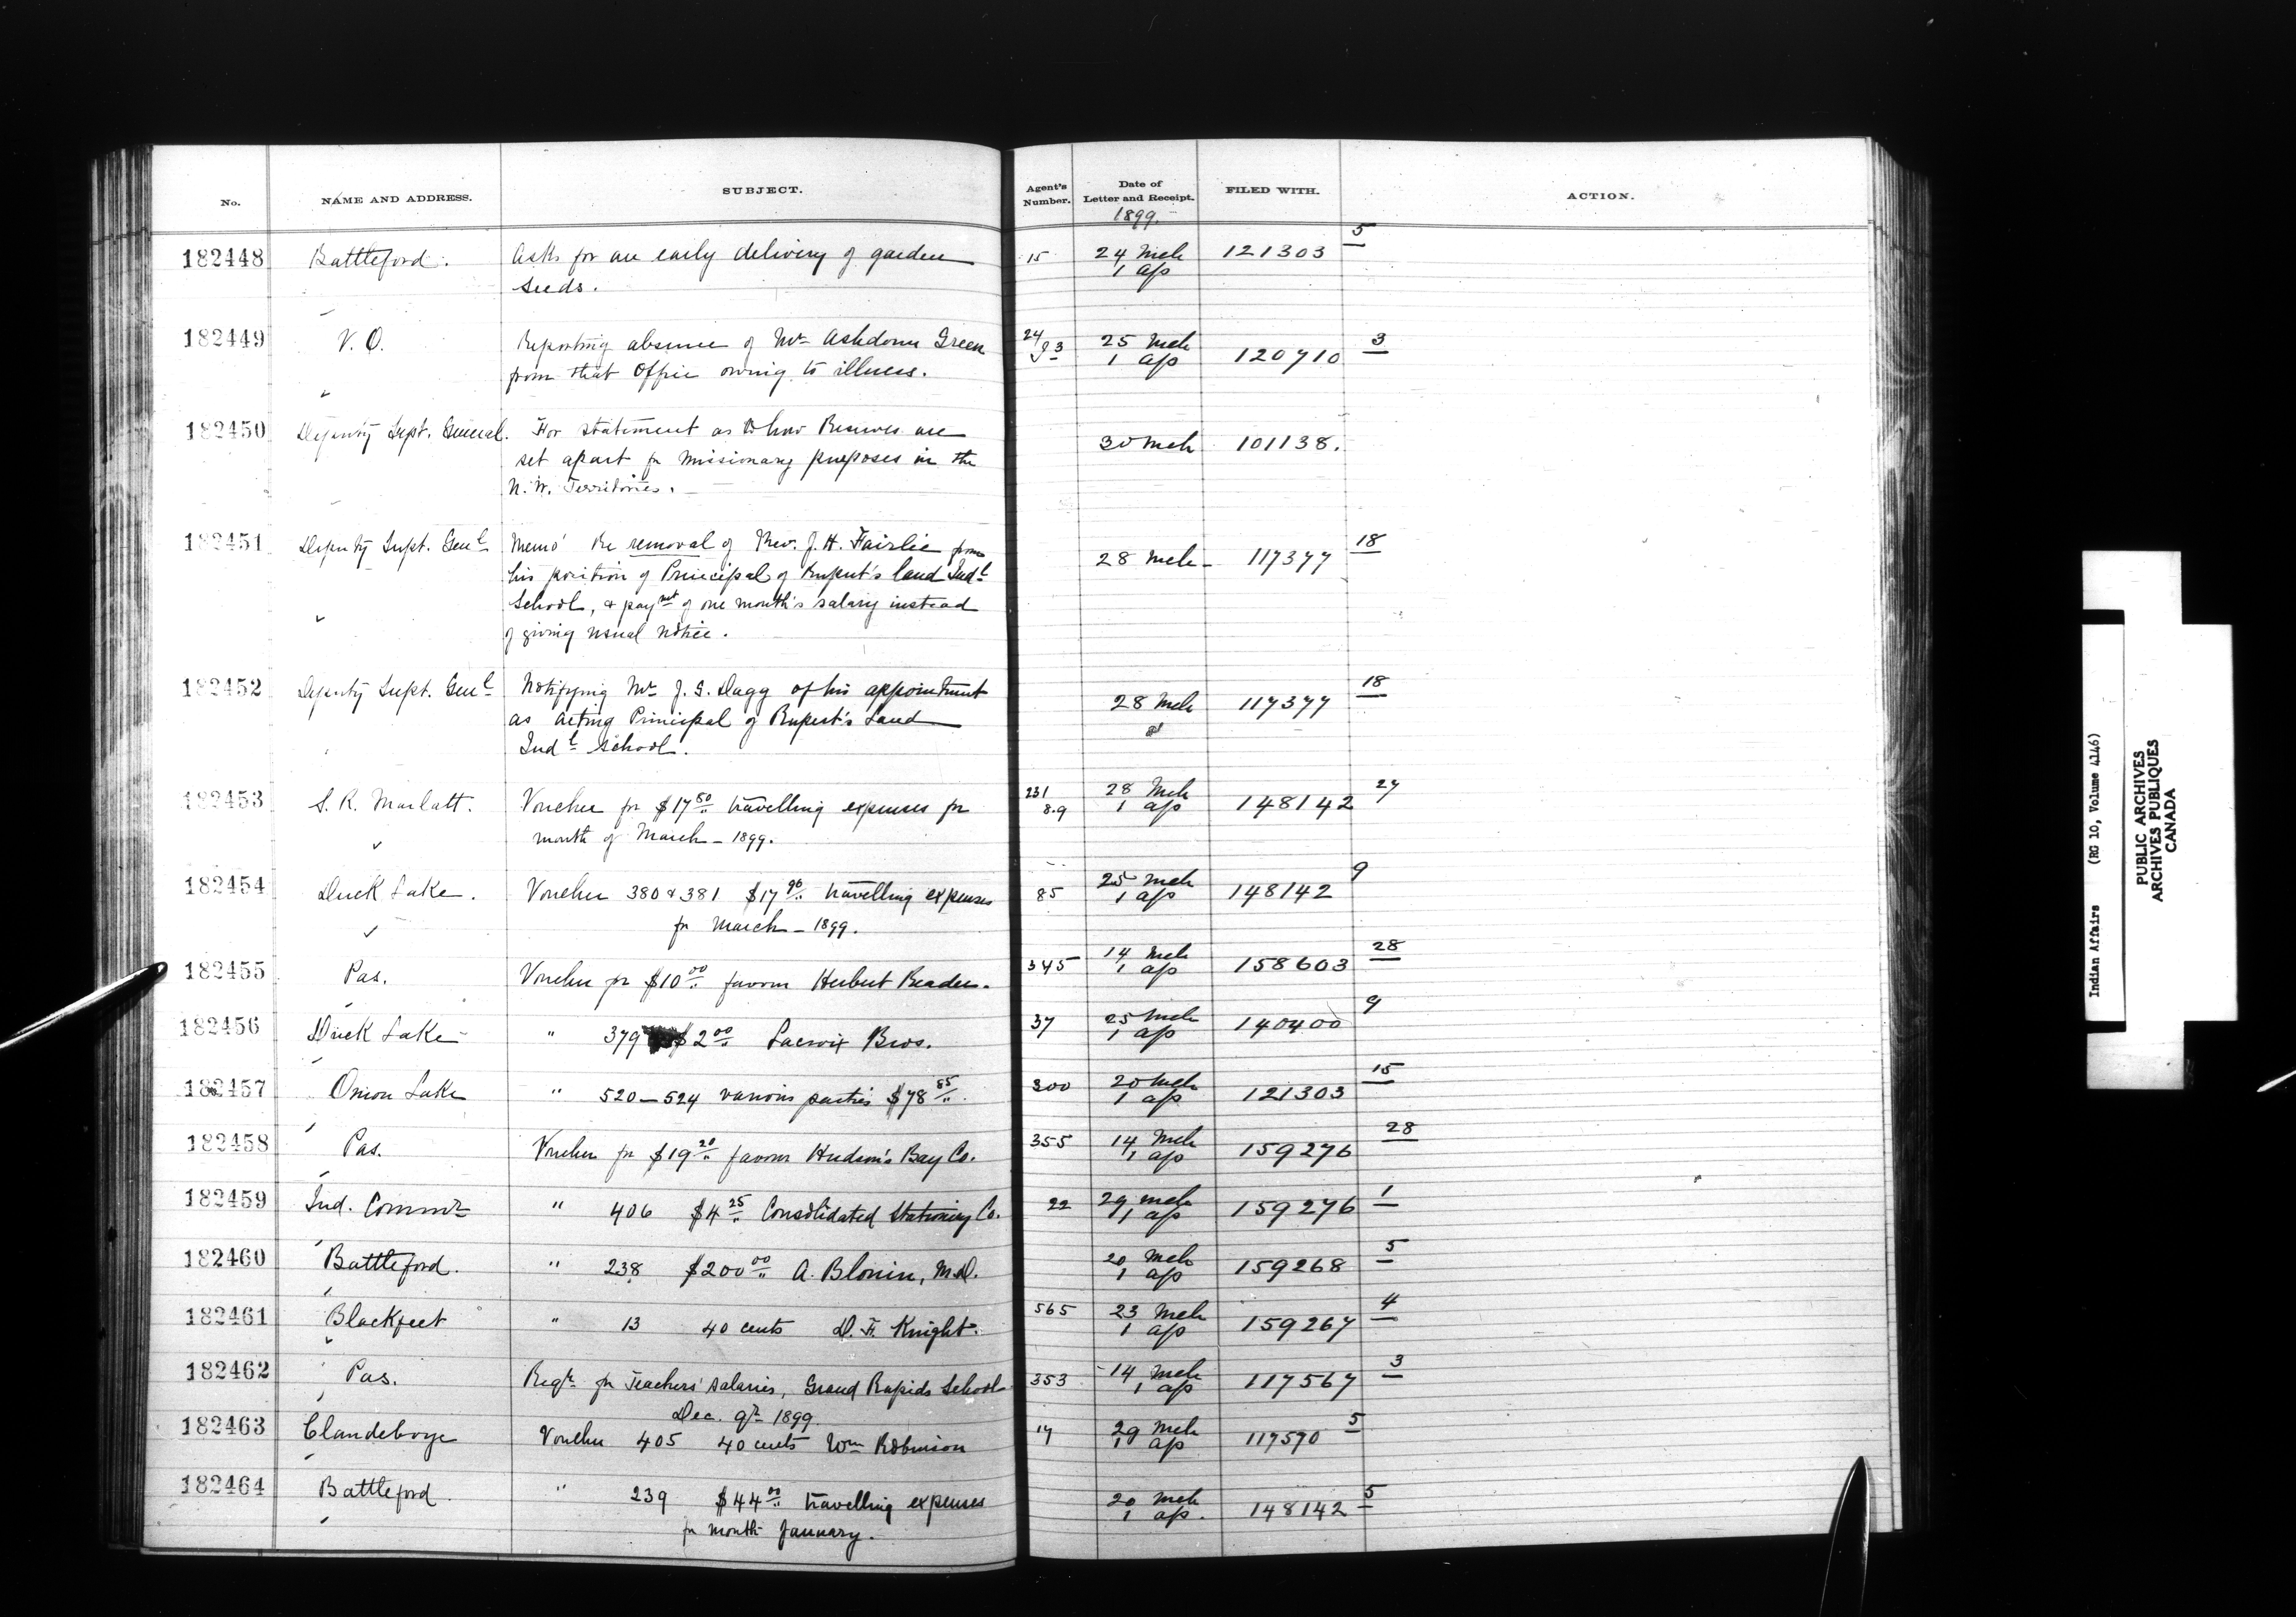 No. NAME AND ADDRESS. SUBJECT. Agent's Number. Date of Letter and Receipt. FILED WITH. ACTION.
1899.
182448 Battleford. Asks for an early delivery of garden 15 24 Mch 121303 5
seeds. 1 Ap
182449 V. O. Reporting absence of Mr Ashdown Green 24/93 25 Mch 120710 3
from that Office owing to illness. 1 Ap
182450 Deputy Supt. General. For statement as to how Reserves are 30 Mch 101138.
set apart for Missionary purposes in the
N. W. Territories.
182451 Deputy Supt. Genl Memo' Re removal of Rev. J. H. Fairlie from 28 Mch 117377 18
his position of Principal of Rupert's land Indl
School, & paymt of one month's salary instead
of giving usual notice.
182452 Deputy Supt. Genl Notifying Mr J. G. Dagg of his appointment 28 Mch 117377 18
as Acting Principal of Rupert's Land
Indl School.
182453 S. R. Marlatt. Voucher for $17 50 travelling expenses for 231 8.9 28 Mch 148142 27
month of March - 1899. 1 Ap
182454 Duck Lake. Voucher 380 & 381 $17 96 travelling expenses 85 25 Mch 148142 9
for March - 1899. 1 Ap
182455 Pas. Voucher for $10 00 favour Herbert Reader. 345 14 Mch 1 Ap 158603 28
182456 Duck Lake " 379 $2 00 Lacroix Bros. 37 25 Mch 1 Ap 140400 9
182457 Onion Lake " 520-524 various parties $78 85. 300 20 Mch 1 Ap 121303 15
182458 Pas. Voucher for $19 20 favour Hudson's Bay Co. 355 14 Mch 1 Ap 159276 28
182459 Ind. Commr " 406 $4 25 Consolidated Stationery Co. 22 29 Mch 1 Ap 159276 1
182460 Battleford. " 238 $200 00 A. Blouin, M.D. 20 Mch 1 Ap 159268 5
182461 Blackfeet " 13 40 cents D. F. Knight. 565 23 Mch 1 Ap 159267 4
182462 Pas. Regr for Teachers' salaries, Grand Rapids School 353 14 Mch 1 Ap 117567 3
Dec. qr 1899.
182463 Clandeboye Voucher 405 40 cents Wm Robinson 17 29 Mch 1 Ap 117570 5
182464 Battleford. " 239 $44 00 travelling expenses 20 Mch 148142 5
for month January. 1 Ap.
Indian Affairs (RG 10, Volume 4146)
PUBLIC ARCHIVES
ARCHIVES PUBLIQUES
CANADA